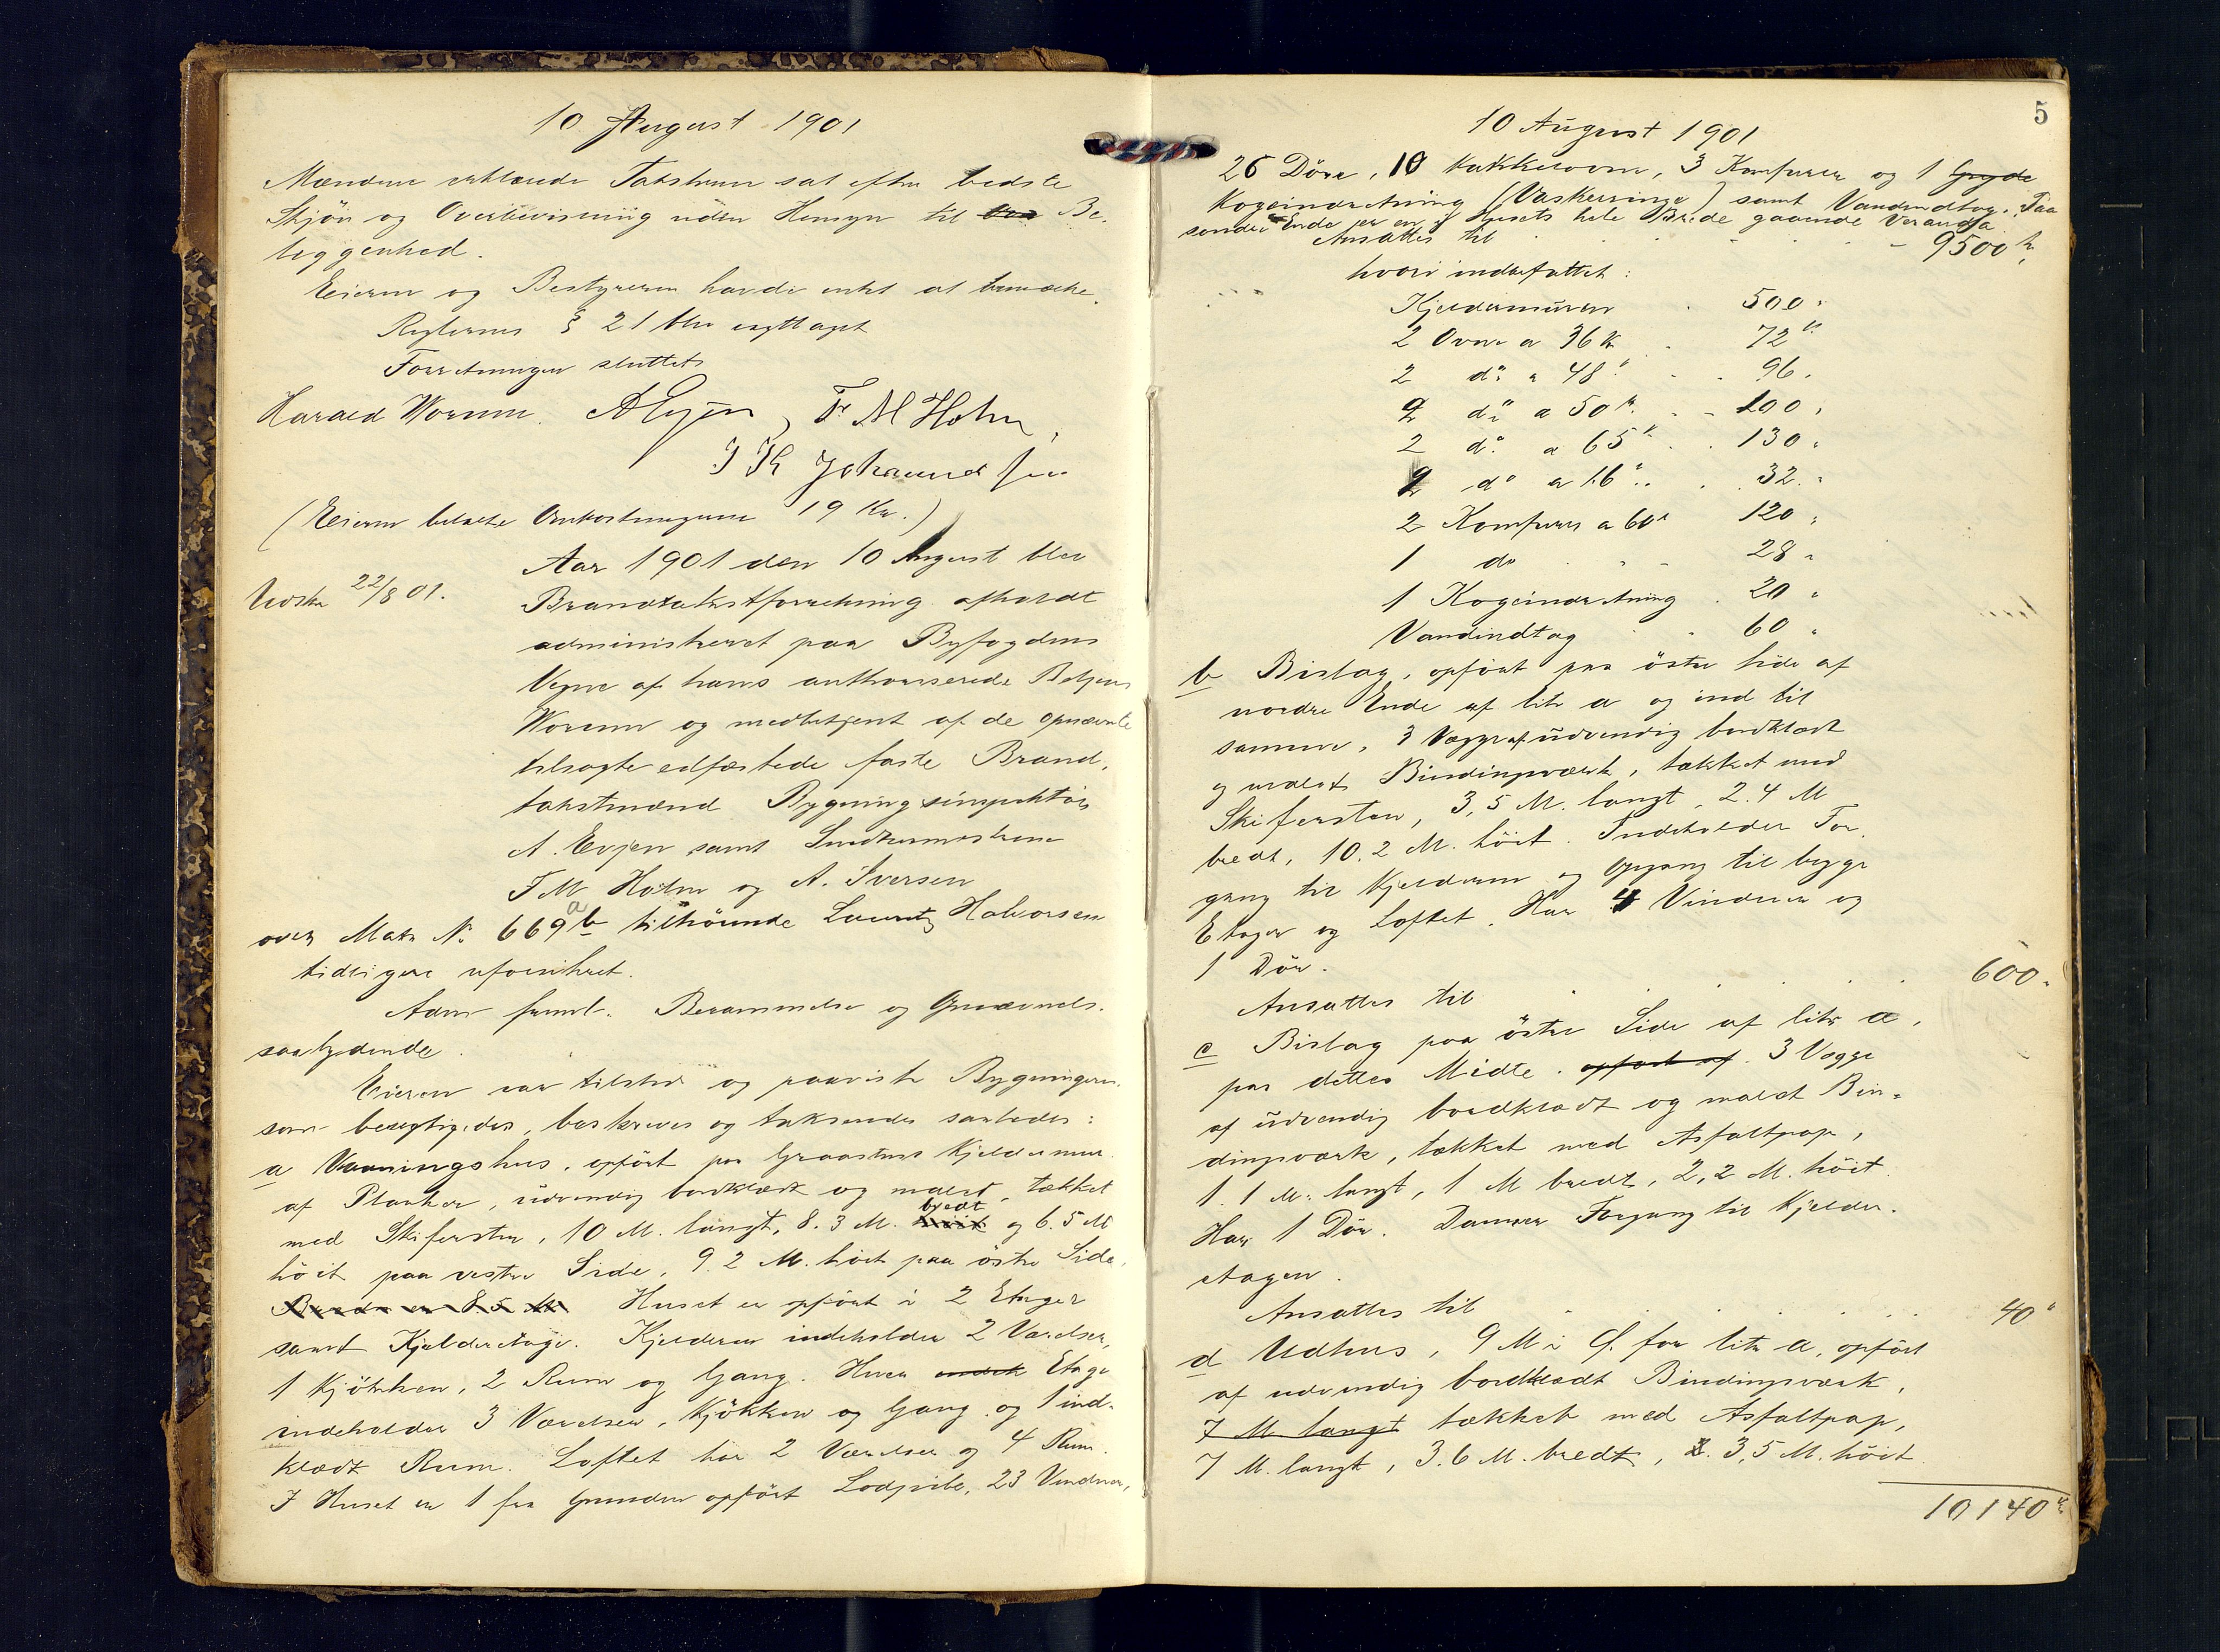 10 August 1901
Mændene erklærede Taksterne sat efter bedste
Skjön og Overbevisning uden Hensyn til Be-
liggenhed.
Eieren og Bestyreren havde intet at bemærke.
Reglernes § 21 blev iagttaget
Forretningen sluttet
Harald Worum. A Evjen, F M Holm,
J K Johannessen
(Eieren betalte Omkostningerne 19 Kr.)
Aar 1901 den 10 August blev
Udskr 22/8 01.
Brandtakstforretning afholdt
administreret paa Byfogdens
Vegne af hans authoriserede Betjent
Worum og medbetjent af de opnævnte
tilsagte edfæstede faste Brand-
takstmænd Bygningsinspektör
A. Evjen samt Snedkermestrene
F M Holm og A. Iversen
over Matr No 669 a b tilhörende Lauritz Halvorsen
tidligere uforsikret.
Adm freml. Berammelse og Opnævnels.
saalydende.
Eieren var tilstede og paaviste Bygningerne
som besigtigedes, beskreves og taksendes saaledes:
a Vaaningshus, opfört paa Graastens Kjeldermur
af Planker, udvendig bordklædt og malet, tækket
med Skifersten, 10 M. langt, 8.3 M. bredt og 6.5 M
höit paa vestre Side, 9.2 M. höit paa östre Side.
Bredde er 8.5 M Huset er opfört i 2 Etager
samt Kjelderetage. Kjelderen indeholder 2 Værelser,
1 Kjökken, 2 Rum og Gang. Hver Etage
indeholder 3 Værelser, Kjökken og Gang og 1 ind-
klædt Rum. Loftet har 2 Værelser og 4 Rum.
I Huset er 1 fra Grunden opfört Lodpibe, 23 Vinduer,
5
10 August 1901
26 Döre, 10 Kakkelovne, 3 Komfurer og 1 Gryde
Kogeindretning (Vaskeringe) samt Vandindtag. Paa
söndre Ende er en i Husets hele Bredde gaaende Veranda.
Ansattes til 9500 kr.
hvori indbefattet:
Kjeldermuren 500 "
2 Ovne a 36 kr 72 "
2 do a 48 " 96 "
2 do a 50 kr. 100 "
2 do a 65 kr 130 "
2 do a 16 " 32 "
2 Komfurer a 60 " 120 "
1 do 28 "
1 Kogeindretning 20 "
Vandindtag 60 "
b Bislag, opfört paa östre Side af
nordre Ende af litr a og ind til
samme, 3 Vægge af udvendig bordklædt
og malet Bindingsværk, tækket med
Skifersten, 3,5 M. langt, 2.4 M
bredt, 10.2 M. höit. Indeholder For-
gang til Kjelderen og Opgang til begge
Etager og Loftet. Har 4 Vinduer og
1 Dör.
Ansattes til 600 "
c Bislag paa östre Side af litr a,
paa dettes Midte. opfört af. 3 Vægge
af udvendig bordklædt og malet Bin-
dingsværk, tækket med Asfaltpap,
1.1 M. langt, 1 M bredt, 2,2 M. höit
Har 1 Dör. Danner Forgang til Kjelder-
etagen.
Ansattes til 40 "
d Udhus, 9 M i Ö. for litr a, opfört
af udvendig bordklædt Bindingsværk,
7 M. langt tækket med Asfaltpap,
7 M. langt, 3.6 M. bredt, 3,5 M. höit
10140 kr